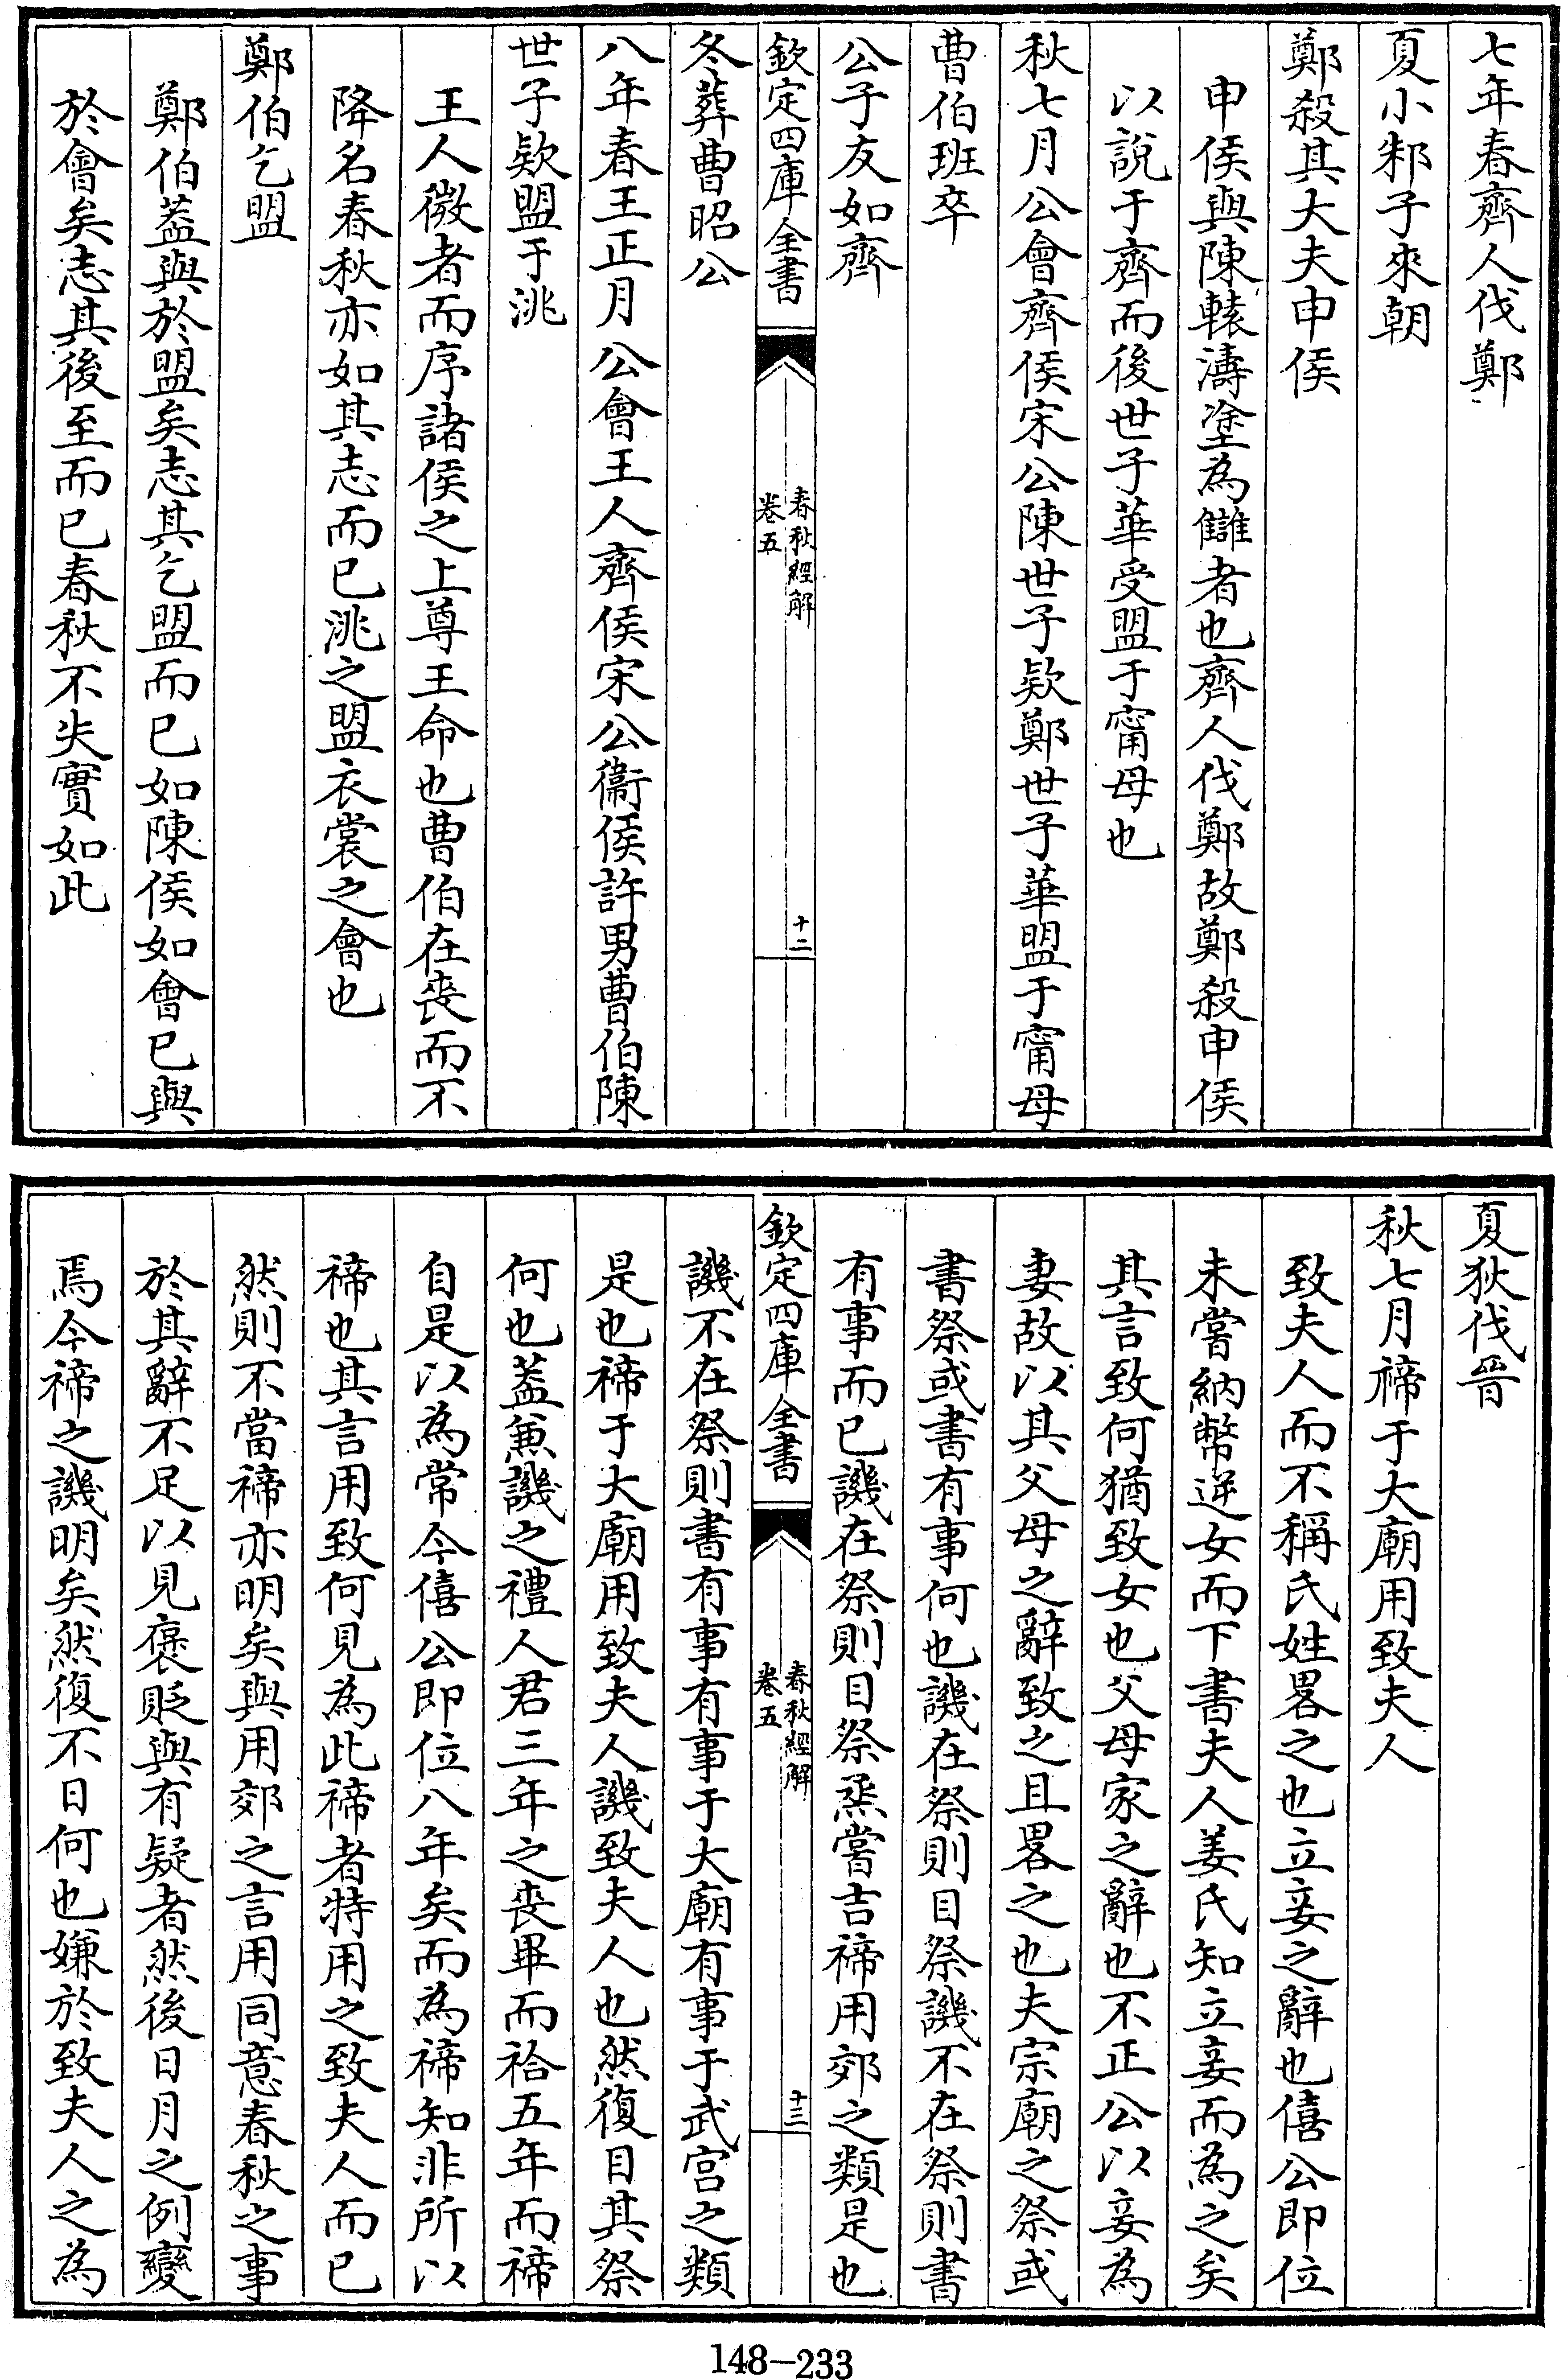 七年春齊人伐鄭
夏小邾子來朝
鄭殺其大夫申侯
申侯與陳轅濤塗為讎者也齊人伐鄭故鄭殺申侯
以說于齊而後世子華受盟于甯母也
秋七月公會齊侯宋公陳世子款鄭世子華盟于甯母
曹伯班卒
公子友如齊
欽定四庫全書
春秋經解
卷五
十二
冬葬曹昭公
八年春王正月公會王人齊侯宋公衞侯許男曹伯陳
世子款盟于洮
王人微者而序諸侯之上尊王命也曹伯在喪而不
降名春秋亦如其志而已洮之盟衣裳之會也
鄭伯乞盟
鄭伯蓋與於盟矣志其乞盟而已如陳侯如會已與
於會矣志其後至而已春秋不失實如此
夏狄伐晉
秋七月禘于大廟用致夫人
致夫人而不稱氏姓畧之也立妾之辭也僖公即位
未嘗納幣逆女而下書夫人姜氏知立妾而為之矣
其言致何猶致女也父母家之辭也不正公以妾為
妻故以其父母之辭致之且畧之也夫宗廟之祭或
書祭或書有事何也譏在祭則目祭譏不在祭則書
有事而已譏在祭則目祭烝嘗吉禘用郊之類是也
欽定四庫全書
春秋經解
卷五
十三
譏不在祭則書有事有事于大廟有事于武宮之類
是也禘于大廟用致夫人譏致夫人也然復目其祭
何也蓋兼譏之禮人君三年之喪畢而祫五年而禘
自是以為常今僖公即位八年矣而為禘知非所以
禘也其言用致何見為此禘者特用之致夫人而已
然則不當禘亦明矣與用郊之言用同意春秋之事
於其辭不足以見褒貶與有疑者然後日月之例變
焉今禘之譏明矣然復不日何也嫌於致夫人之為
148-233